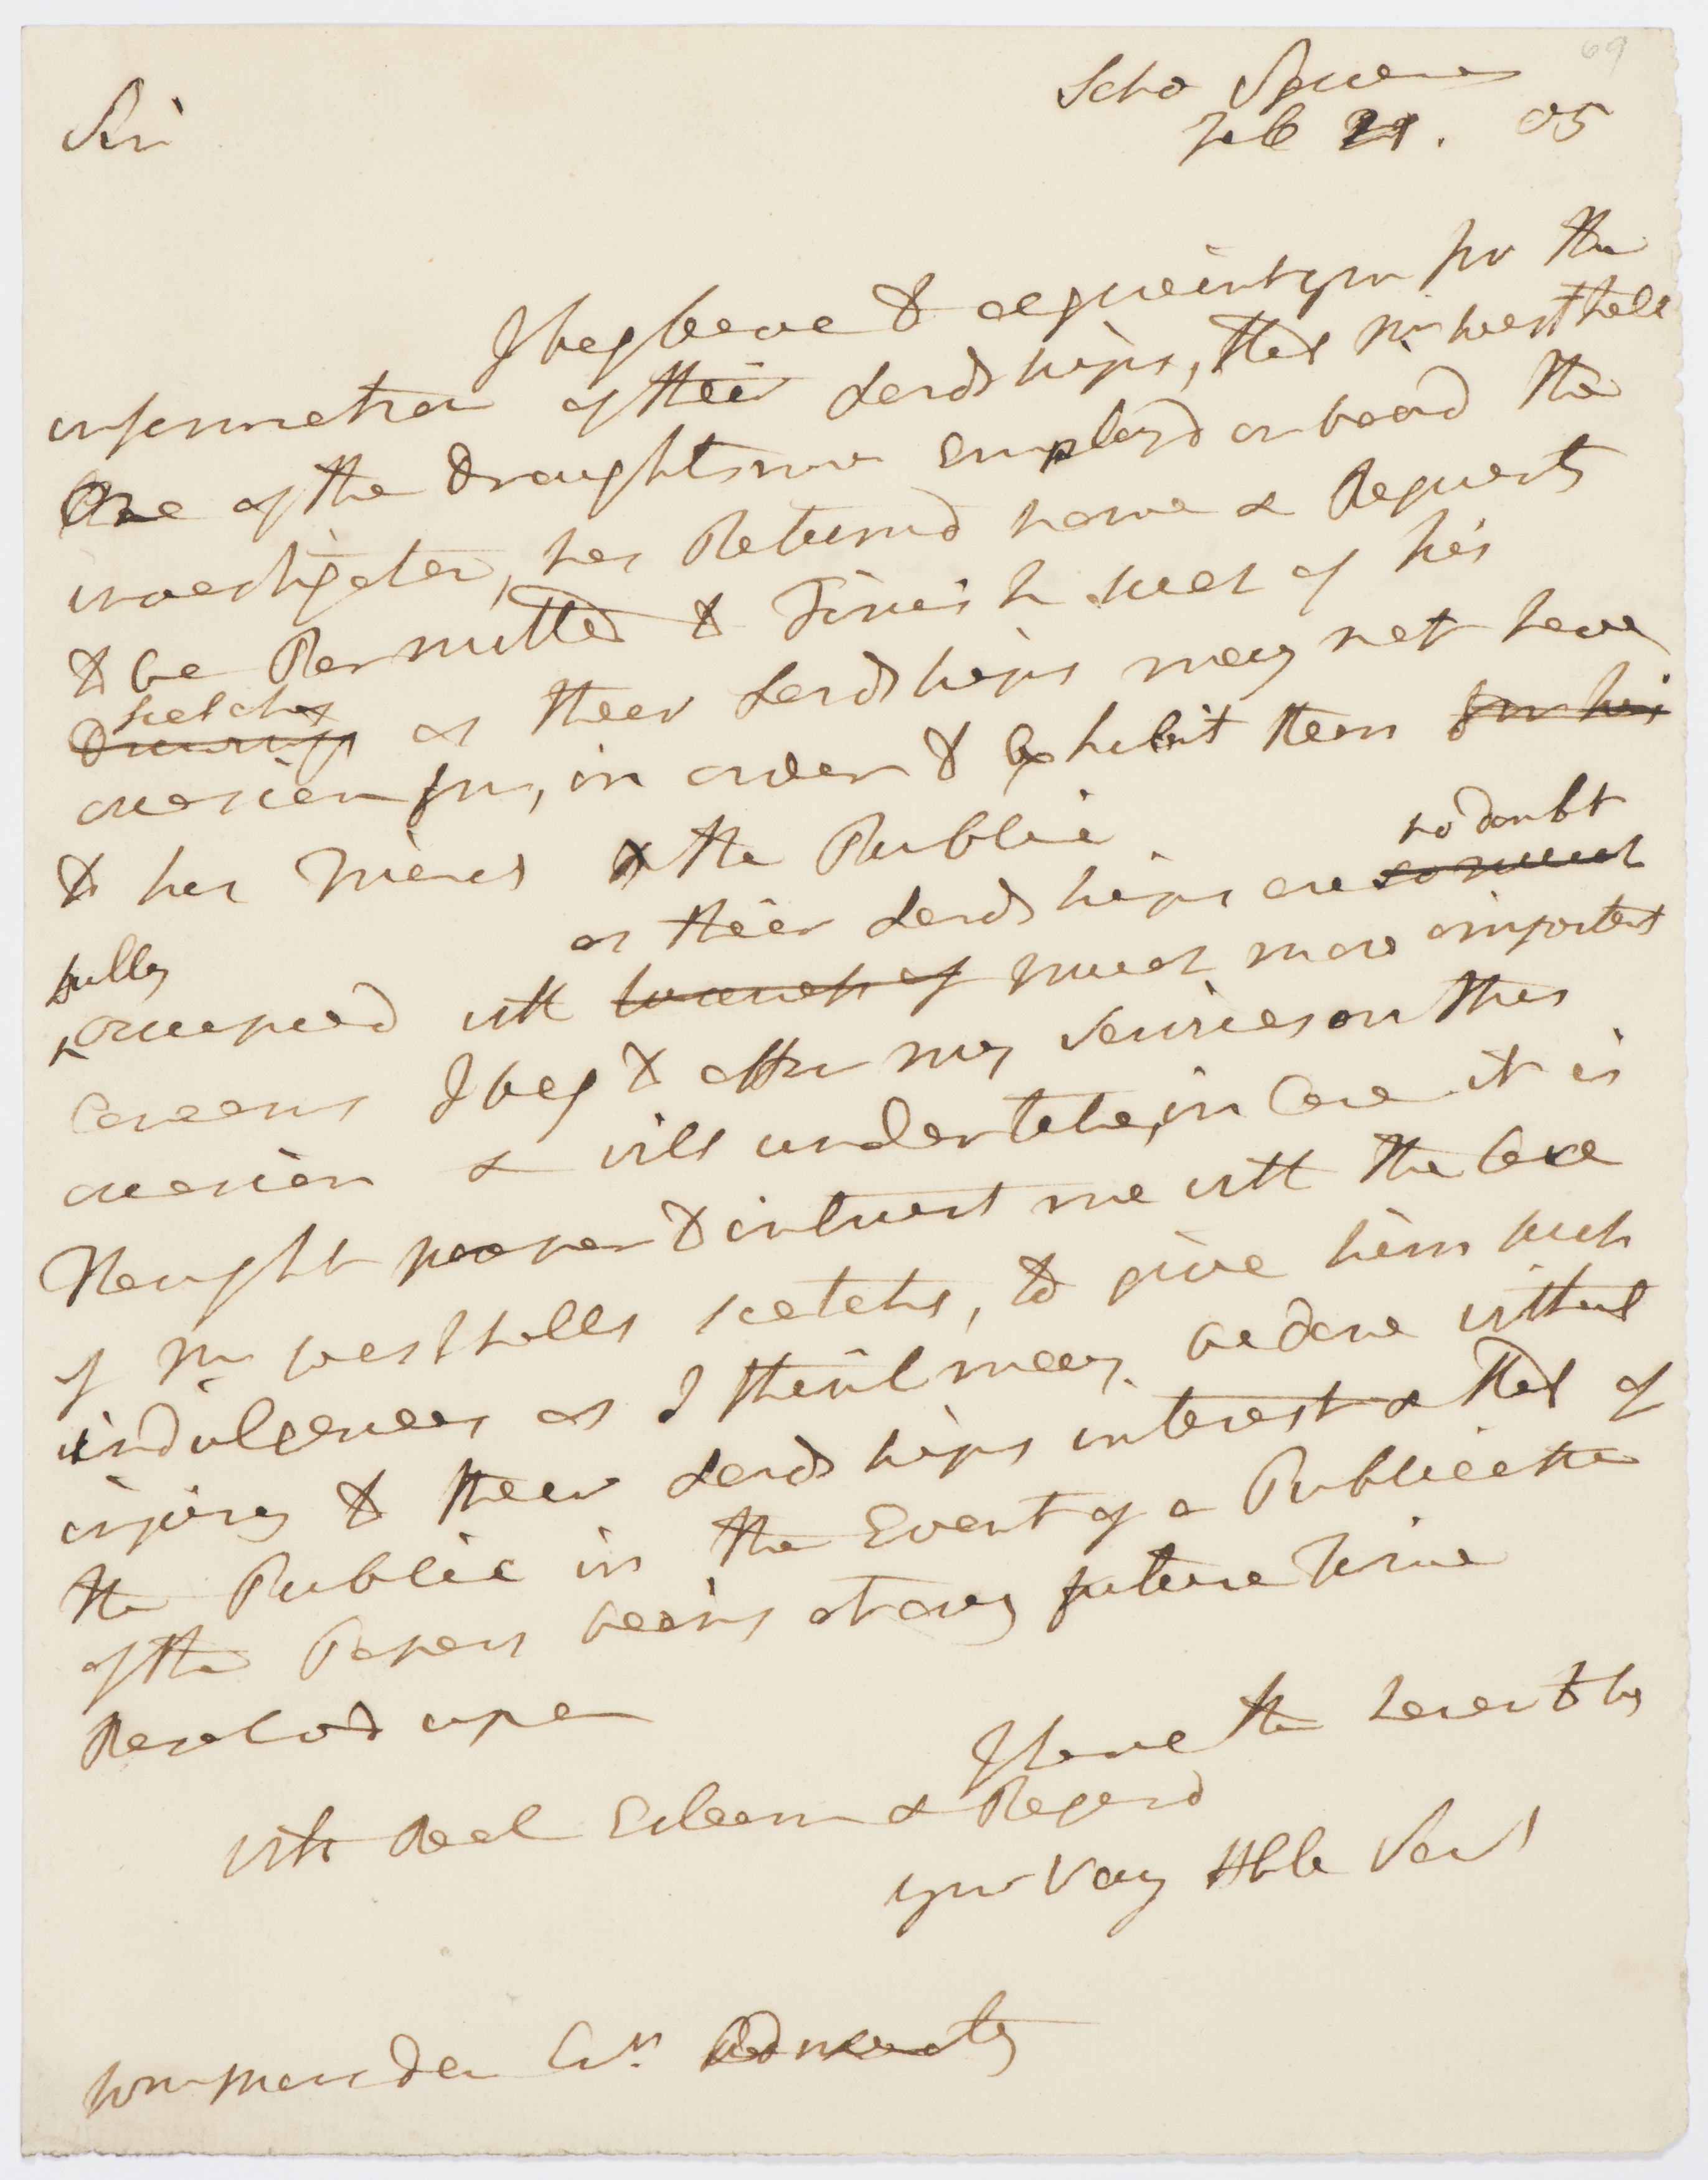 69
Soho Square
Feb 21. 05
Sir
I beg leave to acquaint you for the
information of their Lordships, that Mr. Westhall
One of the Draughtsmen Employd on board the
investigator, has Returnd home & Requests
to be Permitted to Finish such of his
scetches
Drawings as their Lordships may not have
occasion for, in order to Exhibit them for his
to his Friends & the Public
no doubt
as their Lordships are so much
fully
occupied with branches of much more important
Concerns I beg to offer my services on this
occasion & will undertake, in Case it is
thought proper to intrust me with the Care
of Mr. Westhalls scetchs, to give him such
indulgences as I think may be done without
injury to their Lordships interest & that of
the Public in the Event of a Publication
of the Papers being at any future Time
Resolvd upon
I have the honor to be
with Real Esteem & Regard
your Very Hble Servt
Wm Marsden Esqr. Admiralty